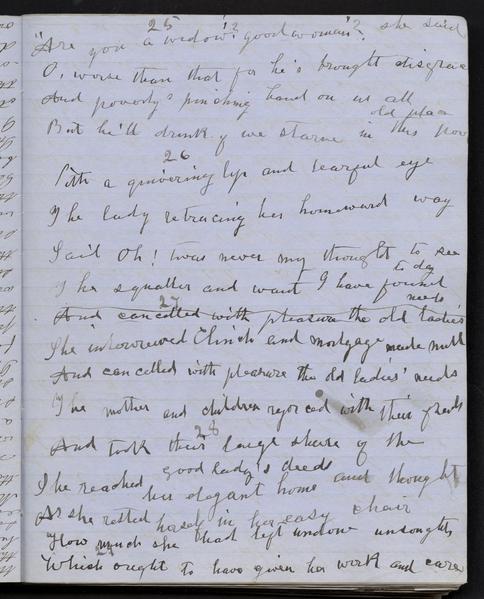 25
"Are you a widow'? good woman"? she said
O, worse than that for he's brought disgrace
And poverty's pinching hand on us all
But he'll drink if we starve in this poor old place
26
With a quivering lip and tearful eye
The lady retracing her homeward way
Said Oh! twas never my thought to see
The squallor and want I have found to day
27
And cancelled with pleasure the old ladie's needs
She interviewed Clinch and mortgage made null
And cancelled with pleasure the old ladies' needs
The mother and children rejoiced with their friends
28
And took their large share of the good lady's deeds
She reached her elegant home and thought
As she rested herself in her easy chair
How much she had left undone unsought
29
Which ought to have given her work and care